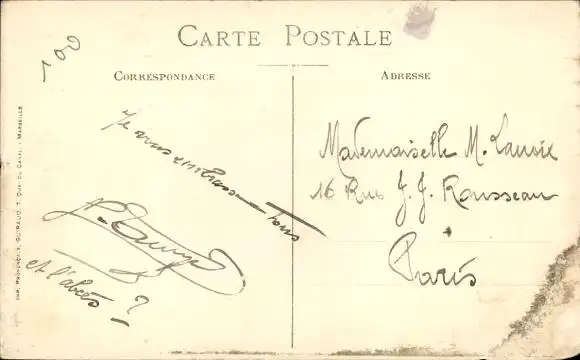 CARTE POSTALE
CORRESPONDANCE
ADRESSE
100
Je vous embrasse Tous
et l'abcès ?
Mademoiselle M. Lanoix
16 Rue J. J. Rousseau
Paris
IMP. PROVENÇALE, GUIRAUD, 7, QUAI DU CANAL - MARSEILLE